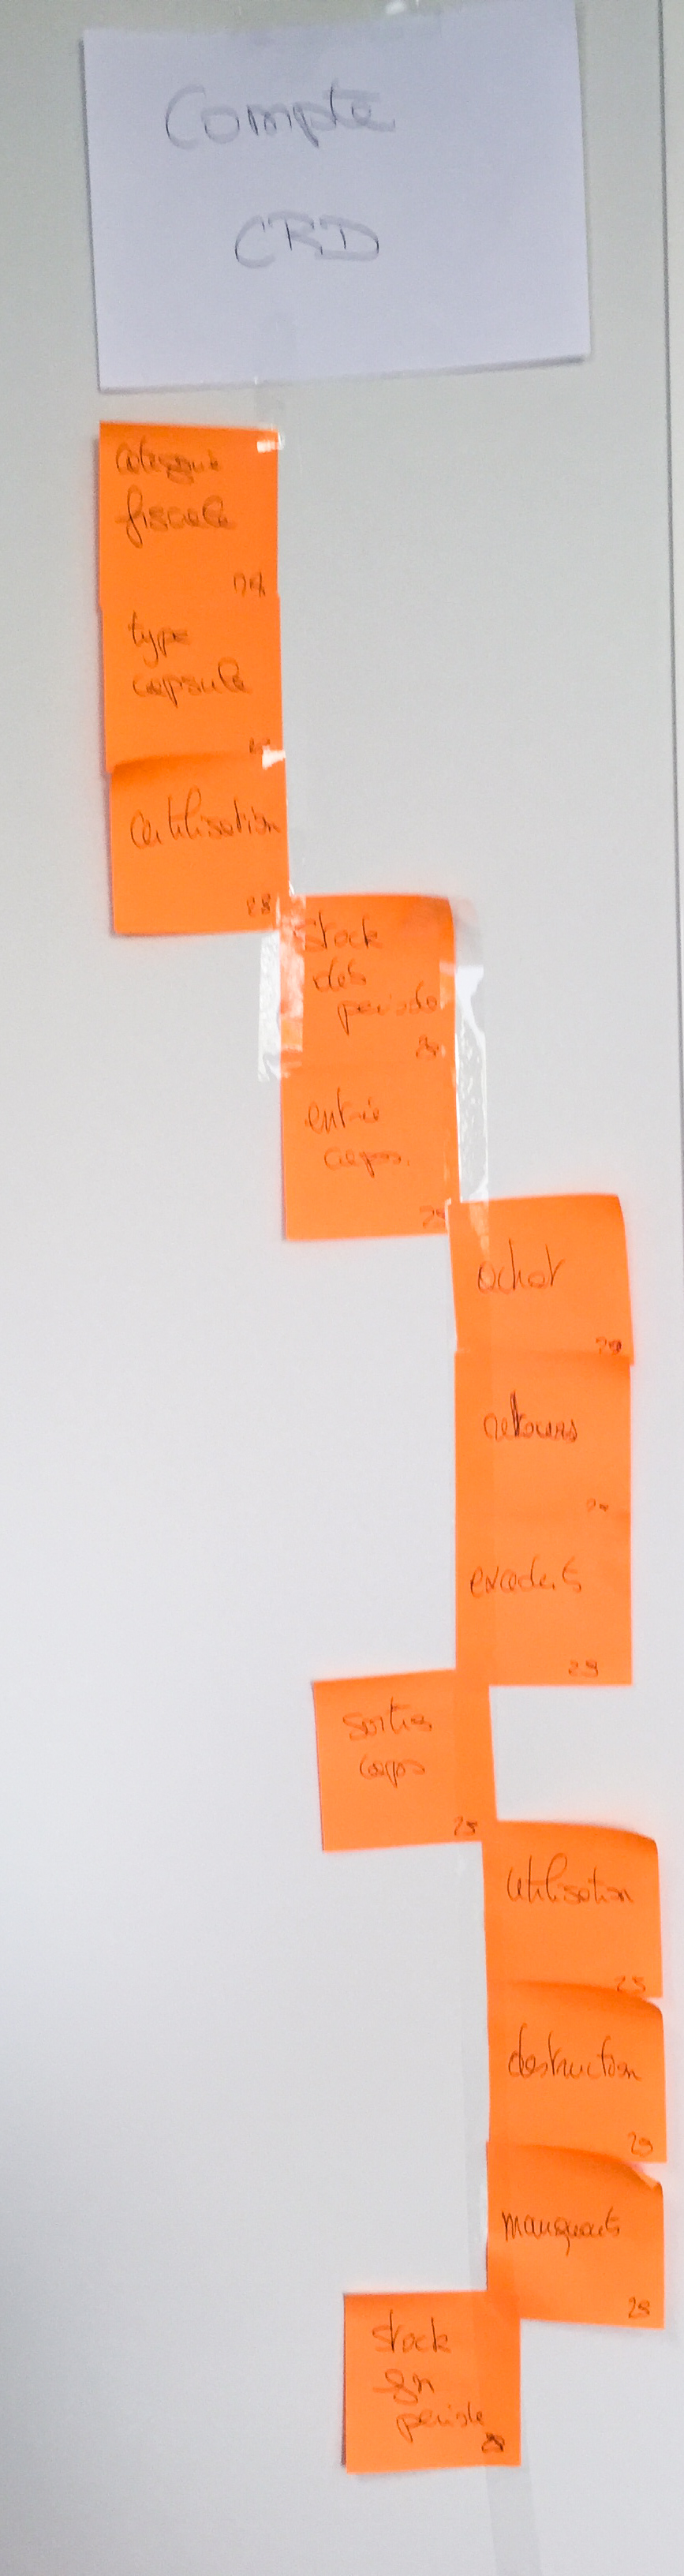 Compte
CRD
categorie
fiscale
type
capsule
centilisation
25
Stock
deb
periode
entrée
caps.
25
achat
29
retours
excedents
29
sortie
caps
25
utilisation
25
destruction
25
manquants
28
Stock
fin
periode